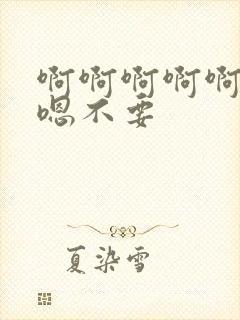 啊啊啊啊啊
嗯不要
夏染雪